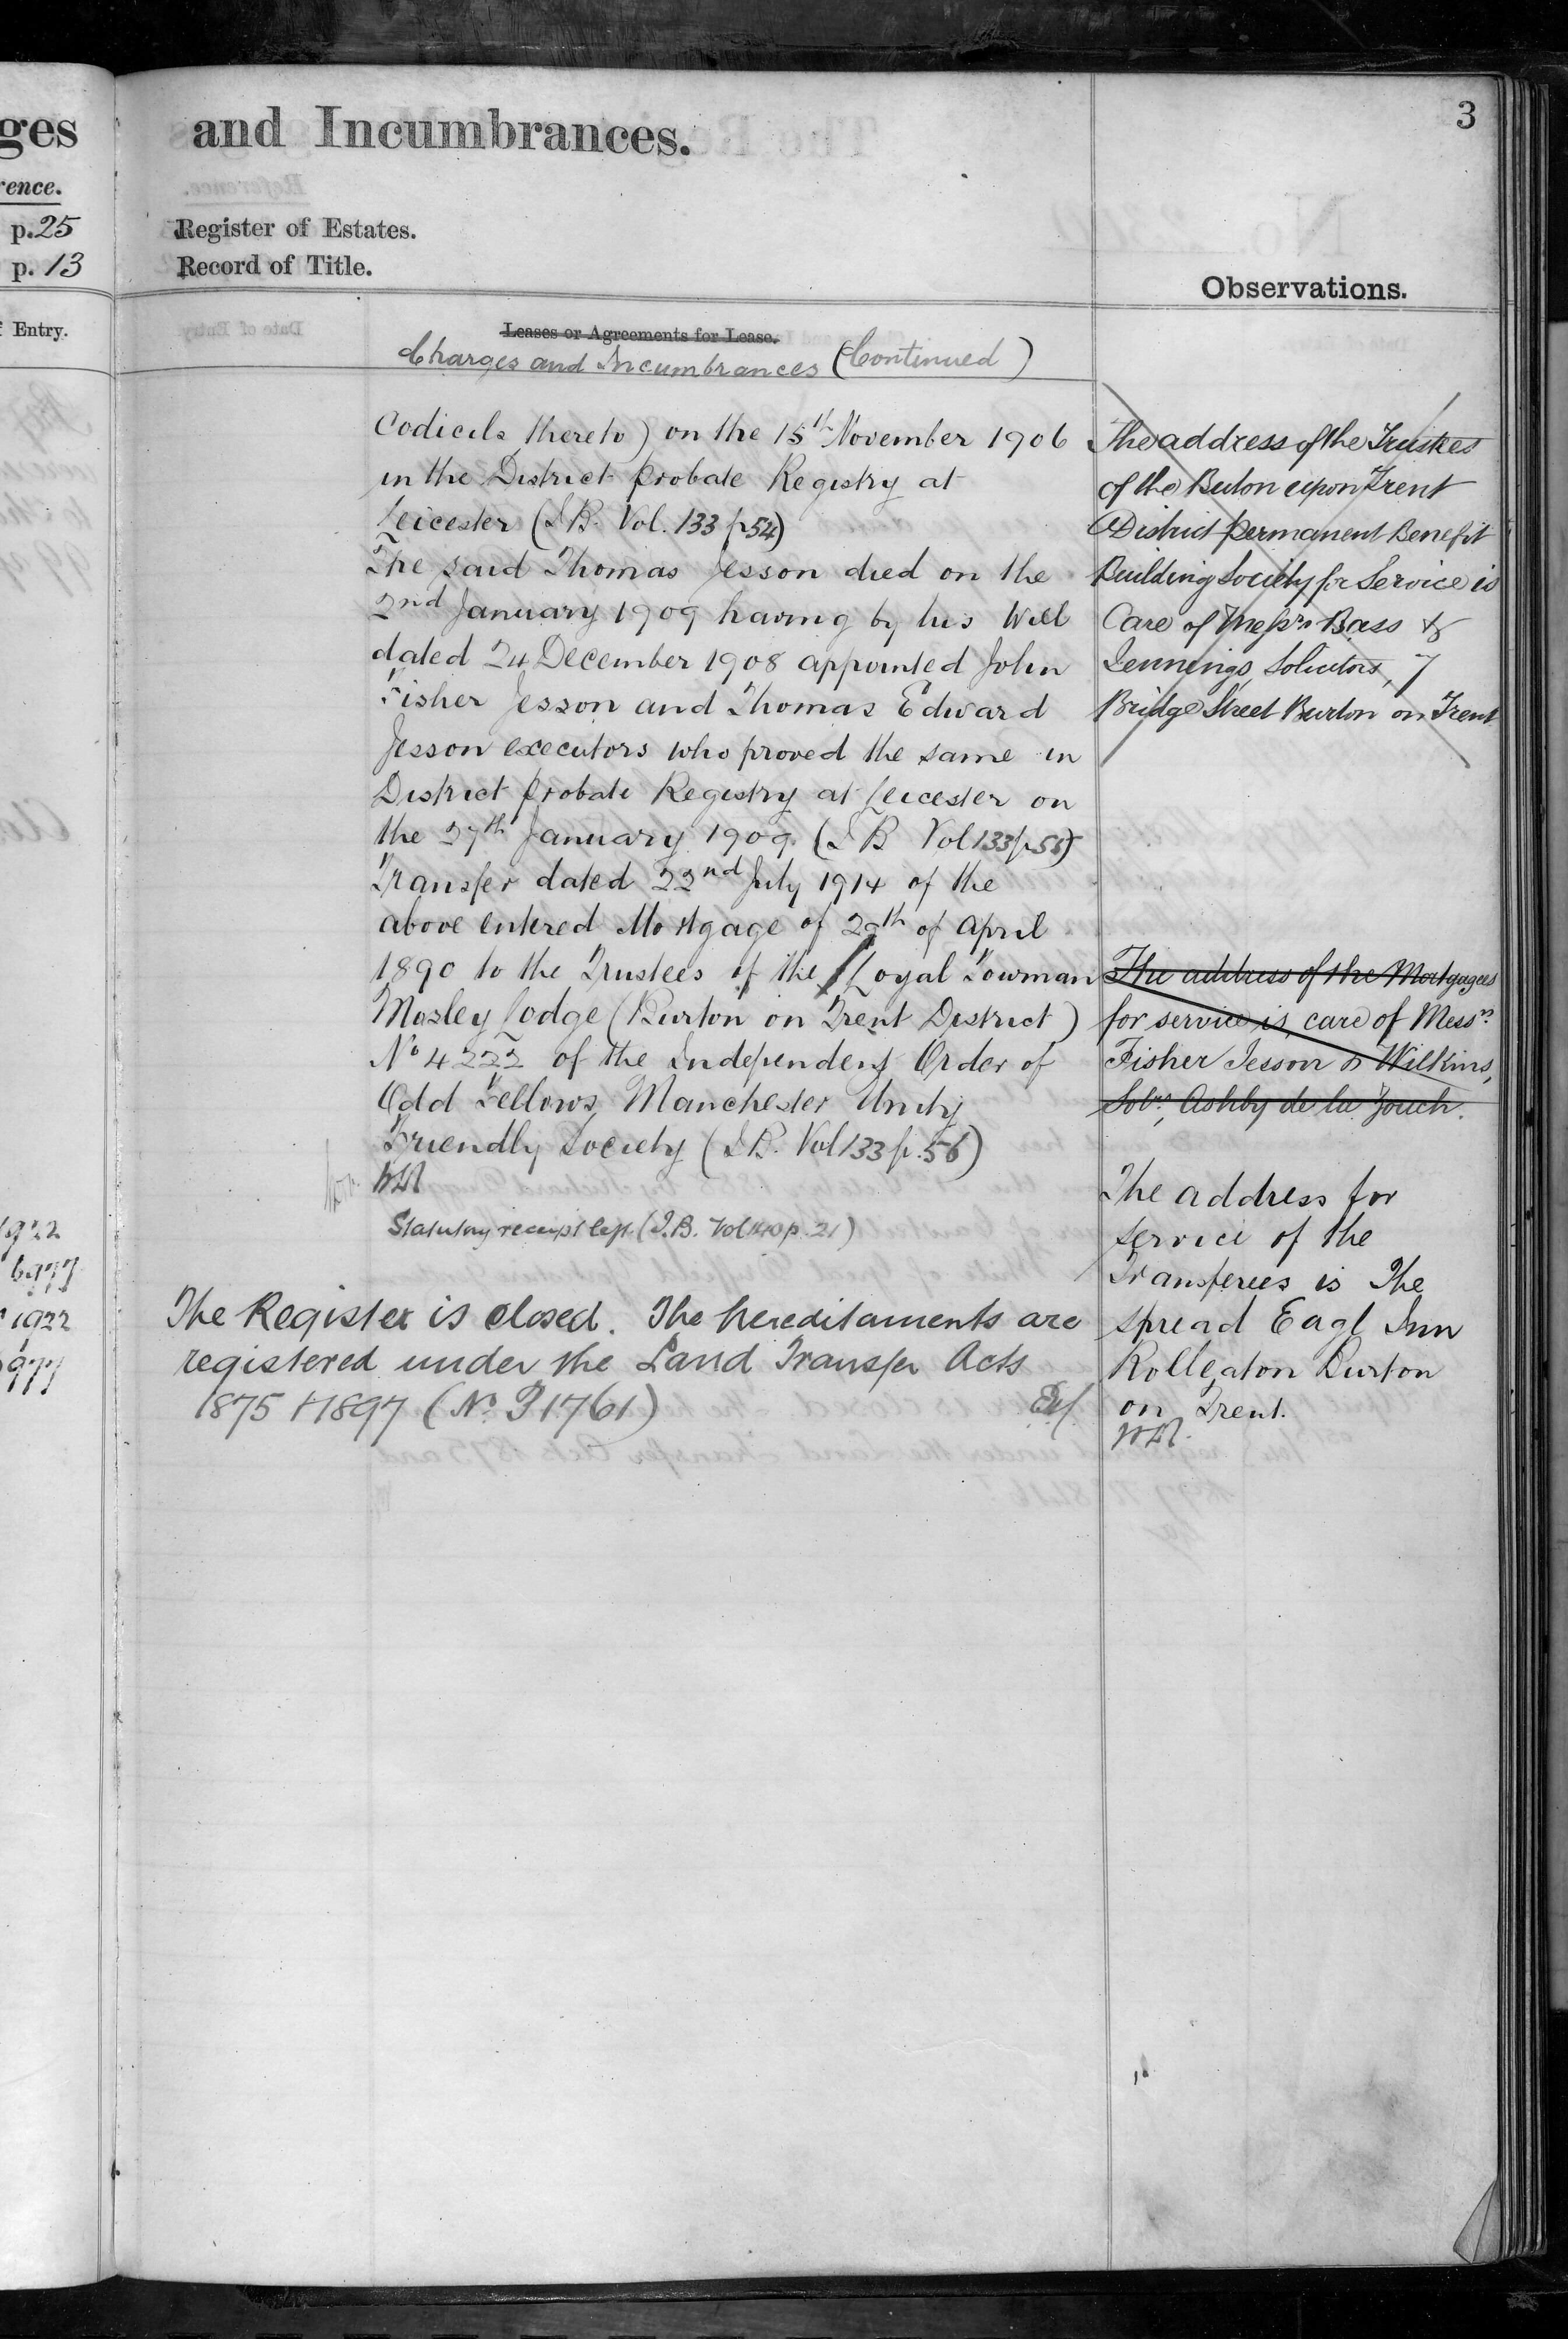 ges
rence.
p. 25
p. 13
f Entry.
1922
6977
1922
977
and Incumbrances.
3
Register of Estates.
Record of Title.
Observations.
Leases or Agreements for Lease.
Charges and Incumbrances (Continued)
Codicils thereto) on the 15th November 1906
in the District Probate Registry at
Leicester (I.B. Vol. 133 p 54)
The said Thomas Jesson died on the
2nd January 1909 having by his Will
dated 24 December 1908 appointed John
Fisher Jesson and Thomas Edward
Jesson executors who proved the same in
District Probate Registry at Leicester on
the 27th January 1909. (I B Vol 133 p 55)
Transfer dated 22nd July 1914 of the
above entered Mortgage of 29th of April
1890 to the Trustees of the Loyal Towman
Mosley Lodge (Burton on Trent District)
No 4222 of the Independent Order of
Odd Fellows Manchester Unity
Friendly Society (I.B. Vol 133 p. 56)
Statutory receipt left. (I.B. Vol 140 p. 21)
The Register is closed. The hereditaments are
registered under the Land Transfer Acts
1875 & 1897 (No. P 1761)
The address of the Trustees
of the Buton upon Trent
& District Permanent Benefit
Building Society for Service is
Care of Messrs Bass &
Jennings, Solicitors, 7
Bridge Street Burton on Trent
The address of the Mortgagees
for service is, care of Messrs
Fisher Jesson & Wilkins,
Solrs, Ashby de la Zouch.
The address for
service of the
Transferees is The
Spread Eagl Inn
Rolleston Burton
on Trent.